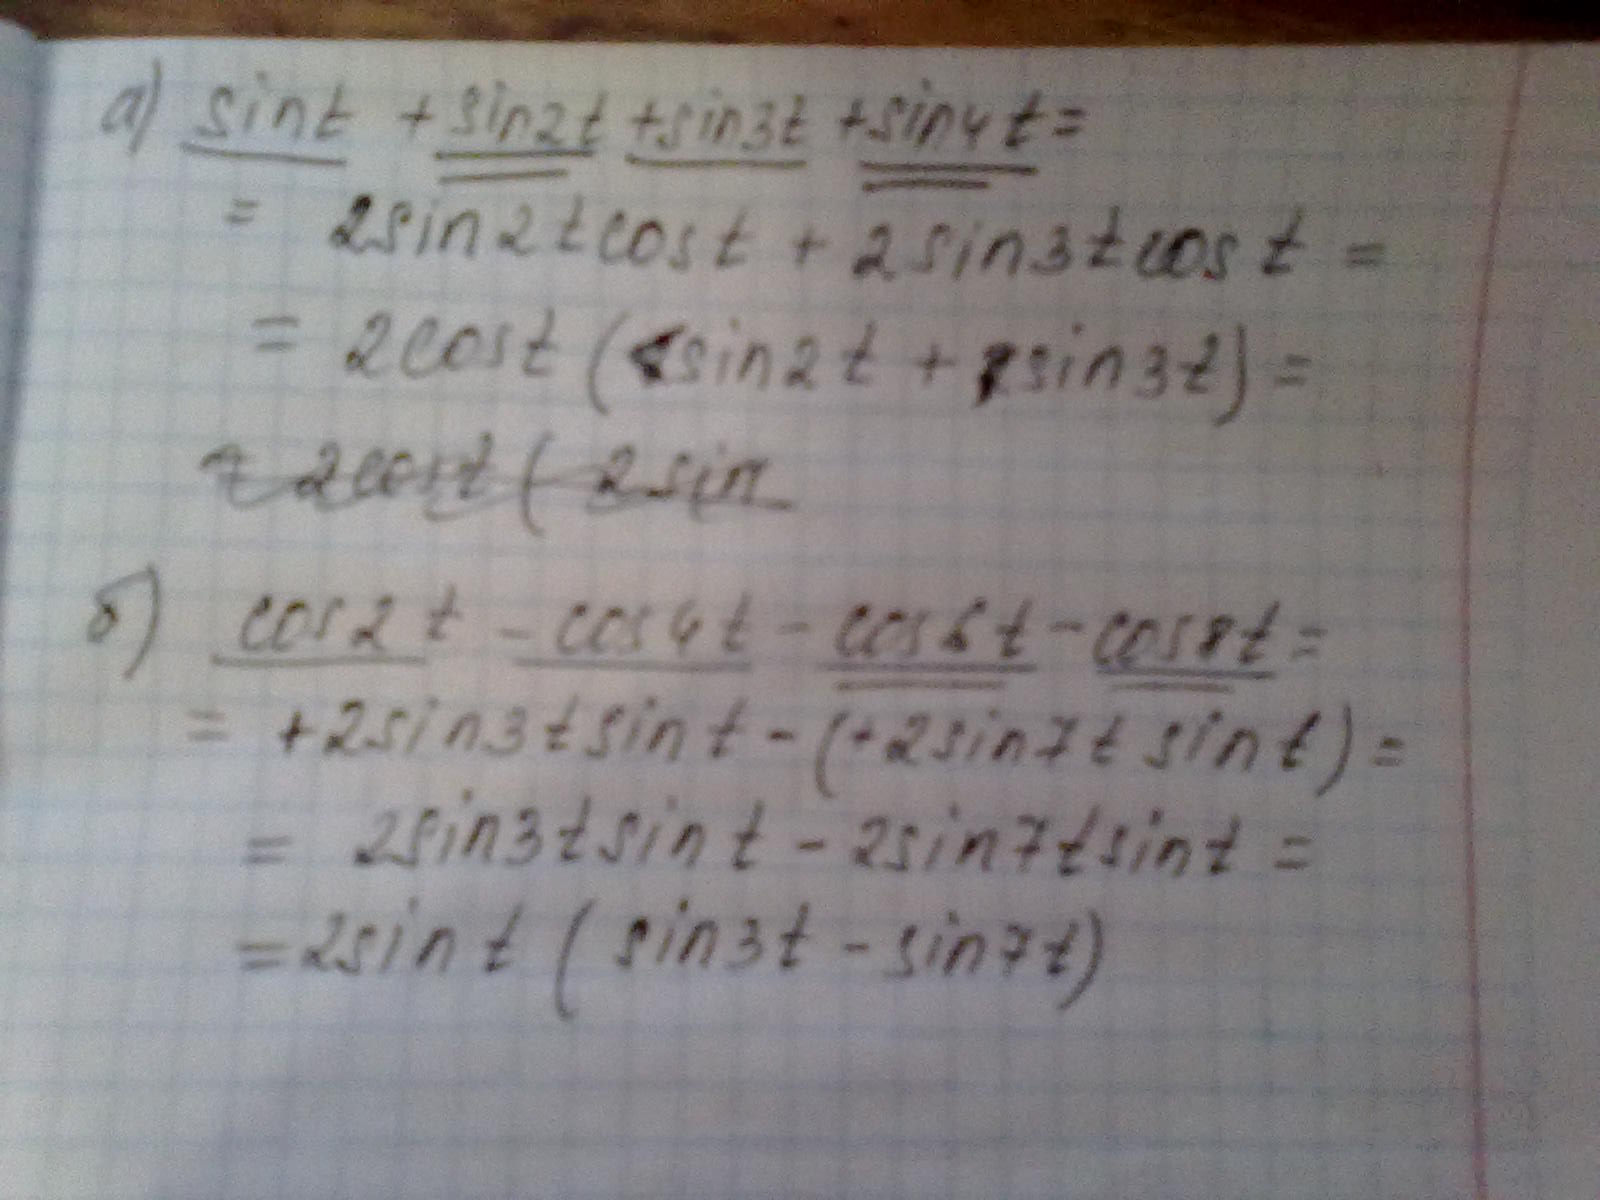 а) sint + sin2t + sin3t + sin4t =
= 2sin2tcost + 2sin3tcost =
= 2cost (sin2t + sin3t) =
= 2cost ( 2sin
б) cos2t - cos4t - cos6t - cos8t =
= +2sin3tsint - (+2sin7t sint) =
= 2sin3tsint - 2sin7tsint =
= 2sint ( sin3t - sin7t)